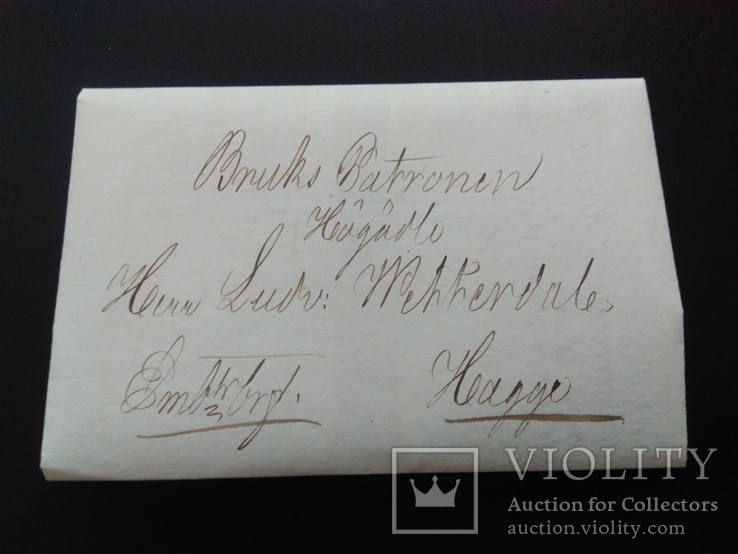 Bruks Patronen
Högädle
Herr Ludv: Wetterdal
Hagge
VIOLITY
Auction for Collectors
auction.violity.com